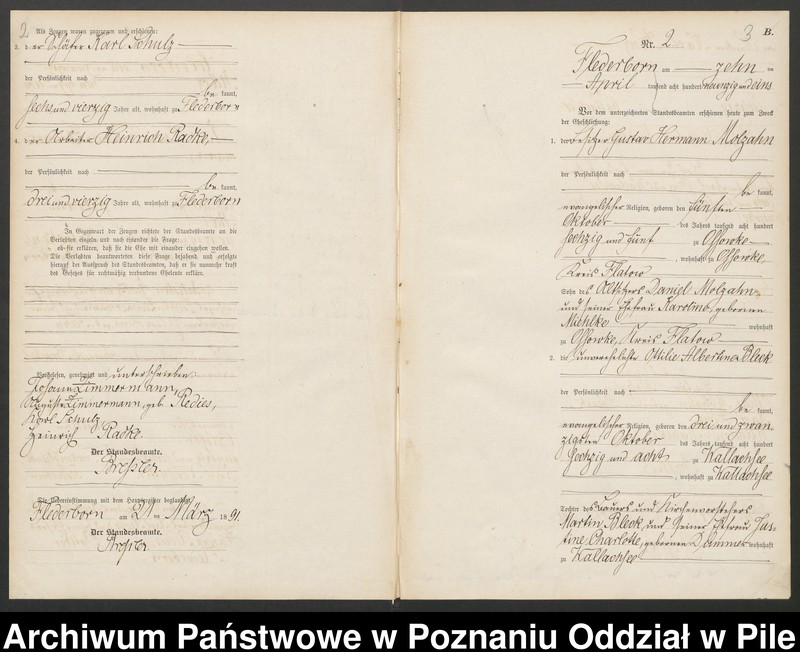 2
Als Zeugen waren zugezogen und erschienen:
3. der Schäfer Karl Schulz
der Persönlichkeit nach
be kannt,
sechs und vierzig Jahre alt, wohnhaft zu Flederborn
4. der Arbeiter Heinrich Radke,
der Persönlichkeit nach
be kannt,
drei und vierzig Jahre alt, wohnhaft zu Flederborn
In Gegenwart der Zeugen richtete der Standesbeamte an die
Verlobten einzeln und nach einander die Frage:
ob sie erklären, daß sie die Ehe mit einander eingehen wollen.
Die Verlobten beantworteten diese Frage bejahend und erfolgte
hierauf der Ausspruch des Standesbeamten, daß er sie nunmehr kraft
des Gesetzes für rechtmäßig verbundene Eheleute erkläre.
Vorgelesen, genehmigt und unterschrieben
Johann Zimmermann,
Auguste Zimmermann, geb. Redies,
Karl Schulz
Heinrich Radke.
Der Standesbeamte.
Die Uebereinstimmung mit dem Hauptregister beglaubigt
Flederborn am 21 ten März 1891.
Der Standesbeamte.
3 B.
Nr. 2
Flederborn am zehn ten
April tausend acht hundert neunzig und eins
Vor dem unterzeichneten Standesbeamten erschienen heute zum Zweck
der Eheschließung:
1. der Besitzer Gustav Hermann Molzahn
der Persönlichkeit nach
be kannt,
evangelischer Religion, geboren den fünften
Oktober des Jahres tausend acht hundert
sechzig und fünf zu Ossowke
, wohnhaft zu Ossowke
Kreis Flatow
Sohn des Altsitzers Daniel Molzahn
und seiner Ehefrau Karoline, geborenen
Michlke wohnhaft
zu Ossowke, Kreis Flatow
2. die unverehelichte Ottilie Albertine Bleck
der Persönlichkeit nach
be kannt,
evangelischer Religion, geboren den drei und zwan
zigsten Oktober des Jahres tausend acht hundert
sechzig und acht zu Kallachsee
, wohnhaft zu Kallachsee
Tochter des Bauers und Kirchenvorstehers
Martin Bleck und seiner Ehefrau Jus-
tine Charlotte, geborenen Dummer wohnhaft
zu Kallachsee
Archiwum Państwowe w Poznaniu Oddział w Pile